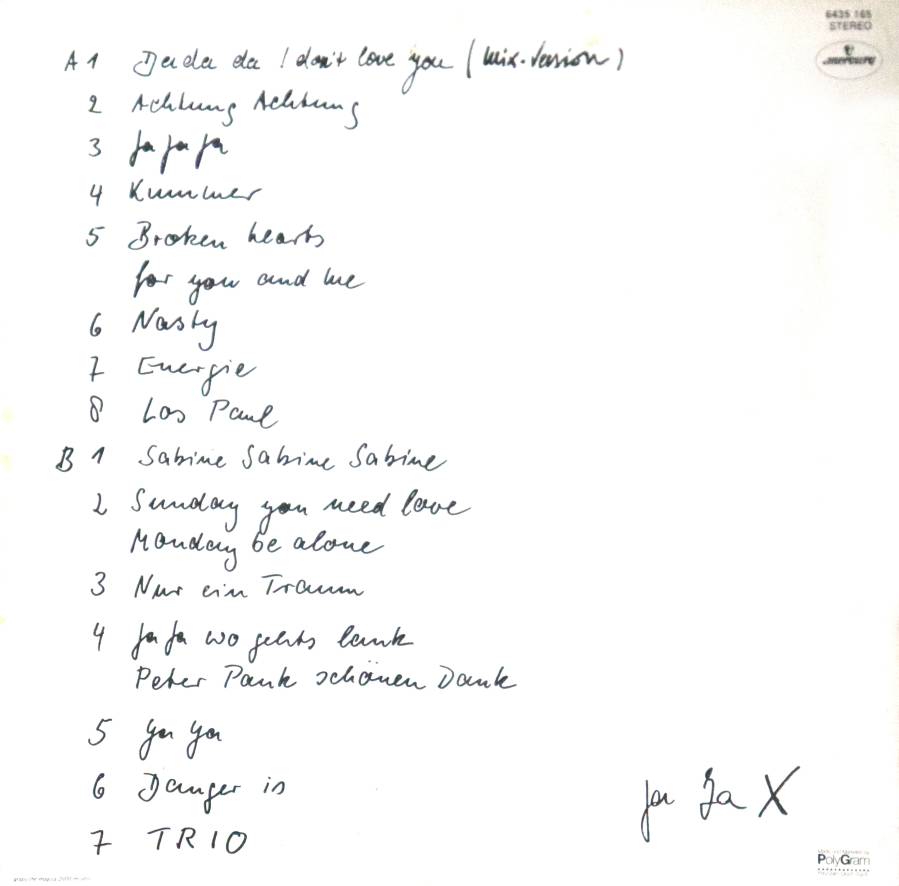 6435 165
STEREO
mercury
A 1 Da da da I don't love you (Mix-Version)
2 Achtung Achtung
3 Ja ja ja
4 Kummer
5 Broken hearts
for you and me
6 Nasty
7 Energie
8 Los Paul
B 1 Sabine Sabine Sabine
2 Sunday you need love
Monday be alone
3 Nur ein Traum
4 Ja Ja wo gehts lank
Peter Pank schönen Dank
5 Ya Ya
6 Danger is
7 TRIO
Ja Ja X
PolyGram